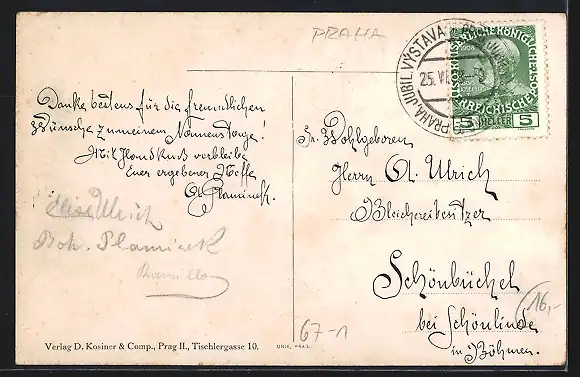 PRAHA
PRAHA. JUBIL. VÝSTAVA
25. VI
1908
5 HELLER 5
Danke bestens für die freundlichen
Wünsche zu meinem Namenstage!
Mit Handkuß verbleibe
Euer ergebener Neffe
Sr. Wohlgeboren
Herrn A. Ulrich
Bleichereibesitzer
Schönbüchel
bei Schönlinde
in Böhmen.
Ulrich
16,-
67-1
Verlag D. Kosiner & Comp., Prag II., Tischlergasse 10.
UNIE, PRAG.